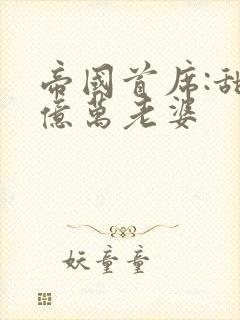 帝國首席:甜
億萬老婆
妖童童